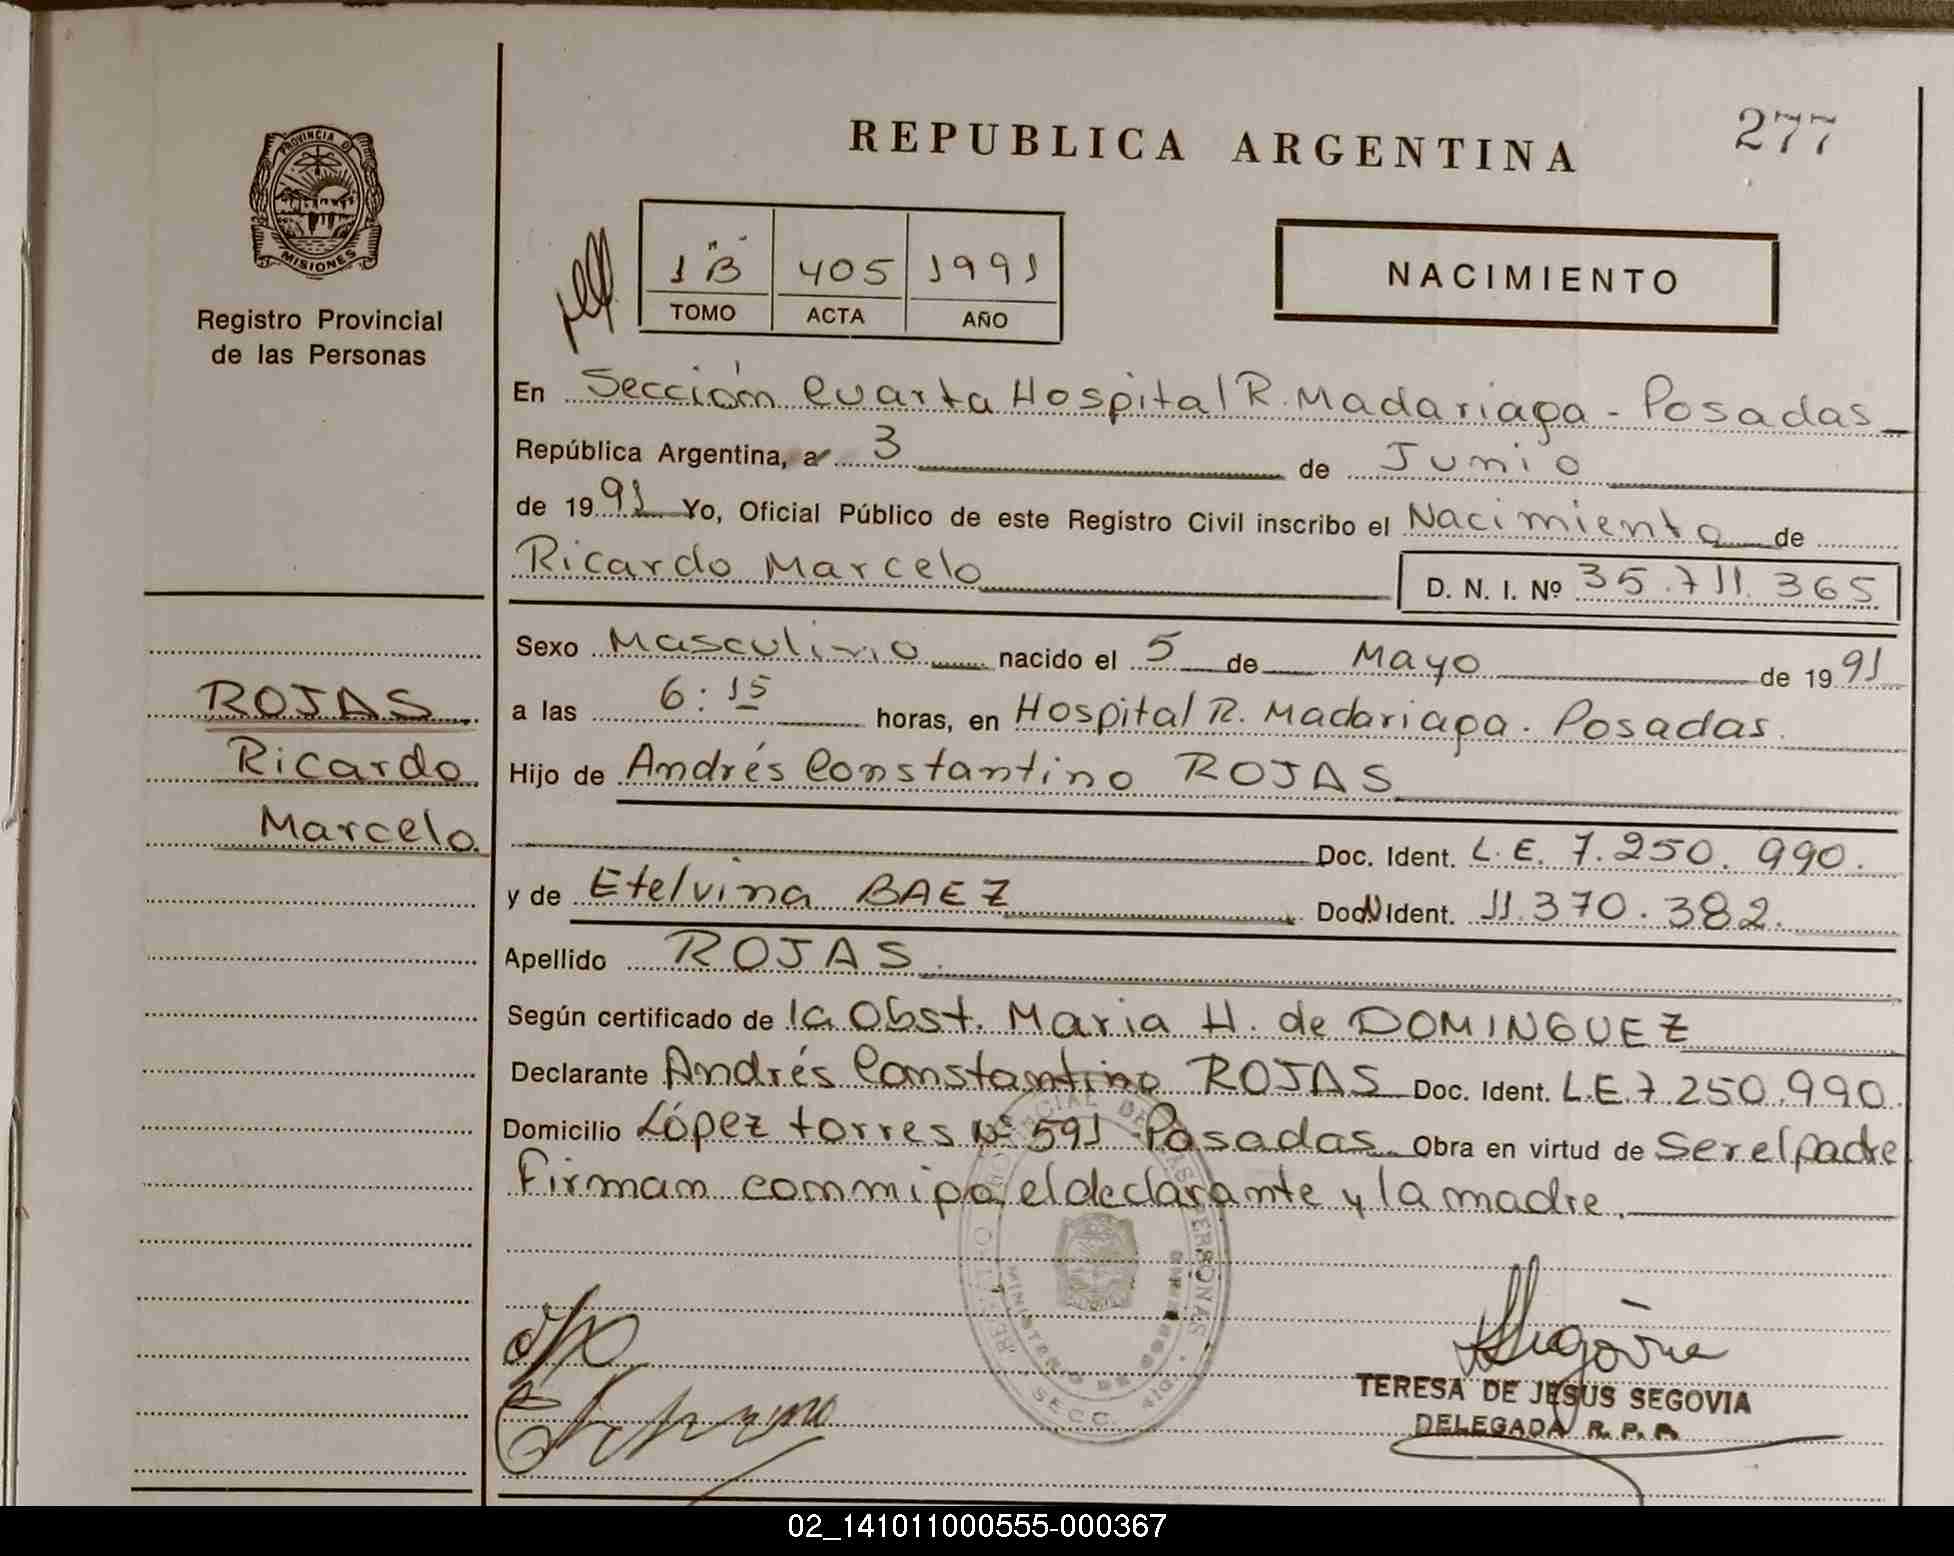 REPUBLICA ARGENTINA
277
PROVINCIA D
MISIONES
Registro Provincial
de las Personas
1 "B" 405 1991
TOMO ACTA AÑO
NACIMIENTO
En Sección Cuarta Hospital R. Madariaga - Posadas
República Argentina, a 3 de Junio
de 1991 Yo, Oficial Público de este Registro Civil inscribo el Nacimiento de
Ricardo Marcelo D. N. I. Nº 35.711.365
Sexo Masculino nacido el 5 de Mayo de 1991
a las 6:15 horas, en Hospital R. Madariaga. Posadas.
Hijo de Andrés Constantino ROJAS
Doc. Ident. L.E. 7.250.990.
y de Etelvina BAEZ Doc. Ident. 11.370.382.
Apellido ROJAS.
Según certificado de la Obst. Maria H. de DOMINGUEZ
Declarante Andrés Constantino ROJAS Doc. Ident. L.E.7.250.990.
Domicilio López torres Nº 591 - Posadas Obra en virtud de Ser el padre
Firman conmigo el declarante y la madre.
ROJAS
Ricardo
Marcelo
MINISTERIO DE
SECC. 4
Segovia
TERESA DE JESUS SEGOVIA
DELEGADA R. P. P.
02_141011000555-000367